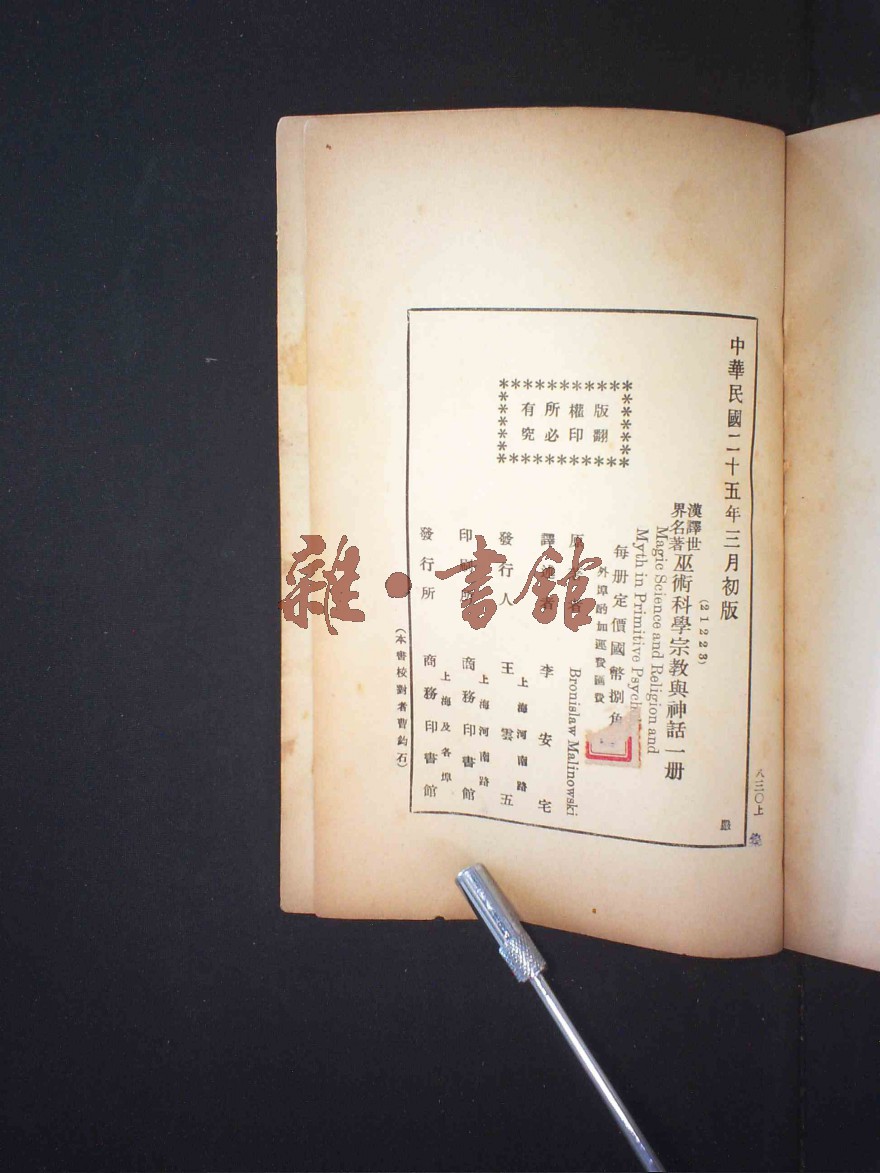 中華民國二十五年三月初版
(21223)
漢譯世界名著 巫術科學宗教與神話一册
Magic Science and Religion and
Myth in Primitive Psych
每册定價國幣捌角
外埠酌加運費匯費
原著者 Bronislaw Malinowski
譯述者 李安宅
發行人 王雲五
上海河南路
印刷所 商務印書館
上海河南路
發行所 商務印書館
上海及各埠
(本書校對者曹鈞石)
版權所有
翻印必究
八三〇上
集
嚴
雜·書館